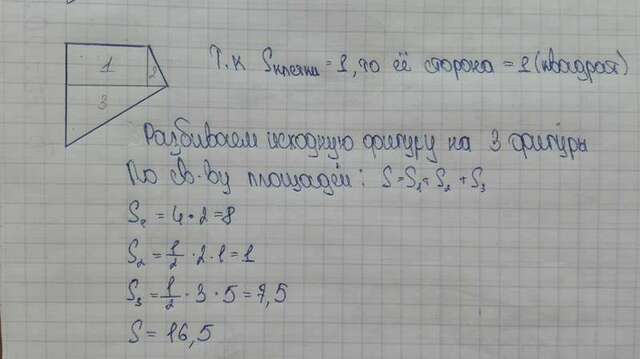 1
2
3
Т.к Sклетки = 1, то её сторона = 1 (квадрат)
Разбиваем исходную фигуру на 3 фигуры
По св-ву площадей: S=S₁+S₂+S₃
S₁ = 4·2=8
S₂ = 1/2 ·2·1=1
S₃ = 1/2 · 3 · 5 = 7,5
S= 16,5